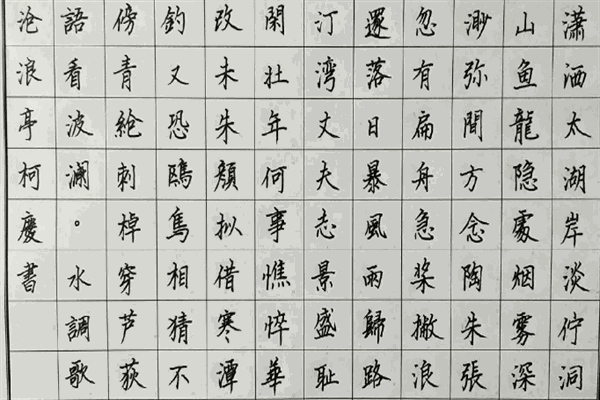 潇洒太湖岸淡佇洞
山鱼龍隐處烟雾深
渺弥間方念陶朱張
忽有扁舟急桨撇浪
還落日暴風雨歸路
汀湾丈夫志景盛耻
閑壮年何事憔悴華
改未朱顔拟借寒潭
釣又恐鷗鳥相猜不
傍青綸刺棹穿芦荻
語看波澜。水調歌
沧浪亭柯慶書